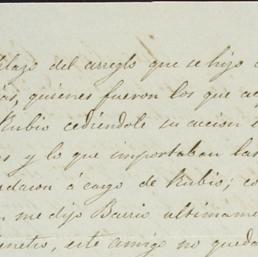 del arreglo que se hizo
quienes fueron los que
Rubio cediéndole su accion
y lo que importaban las
a cargo de Rubio; co
me dijo Barrio ultimame
este amigo no queda